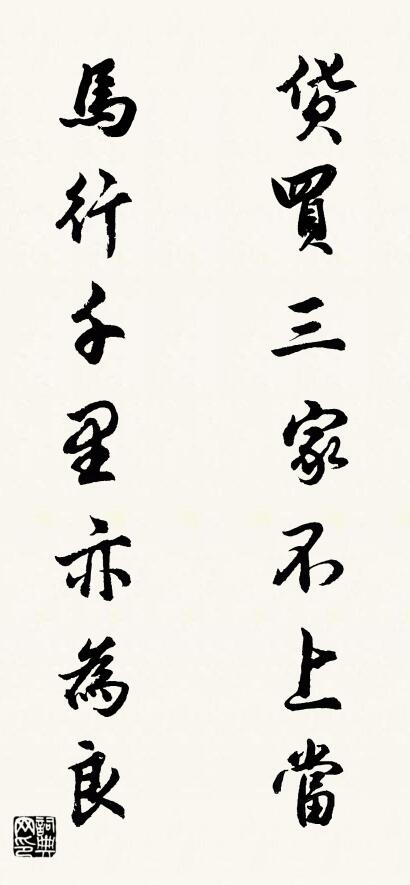 货買三家不上當
馬行千里亦為良
詞典網印